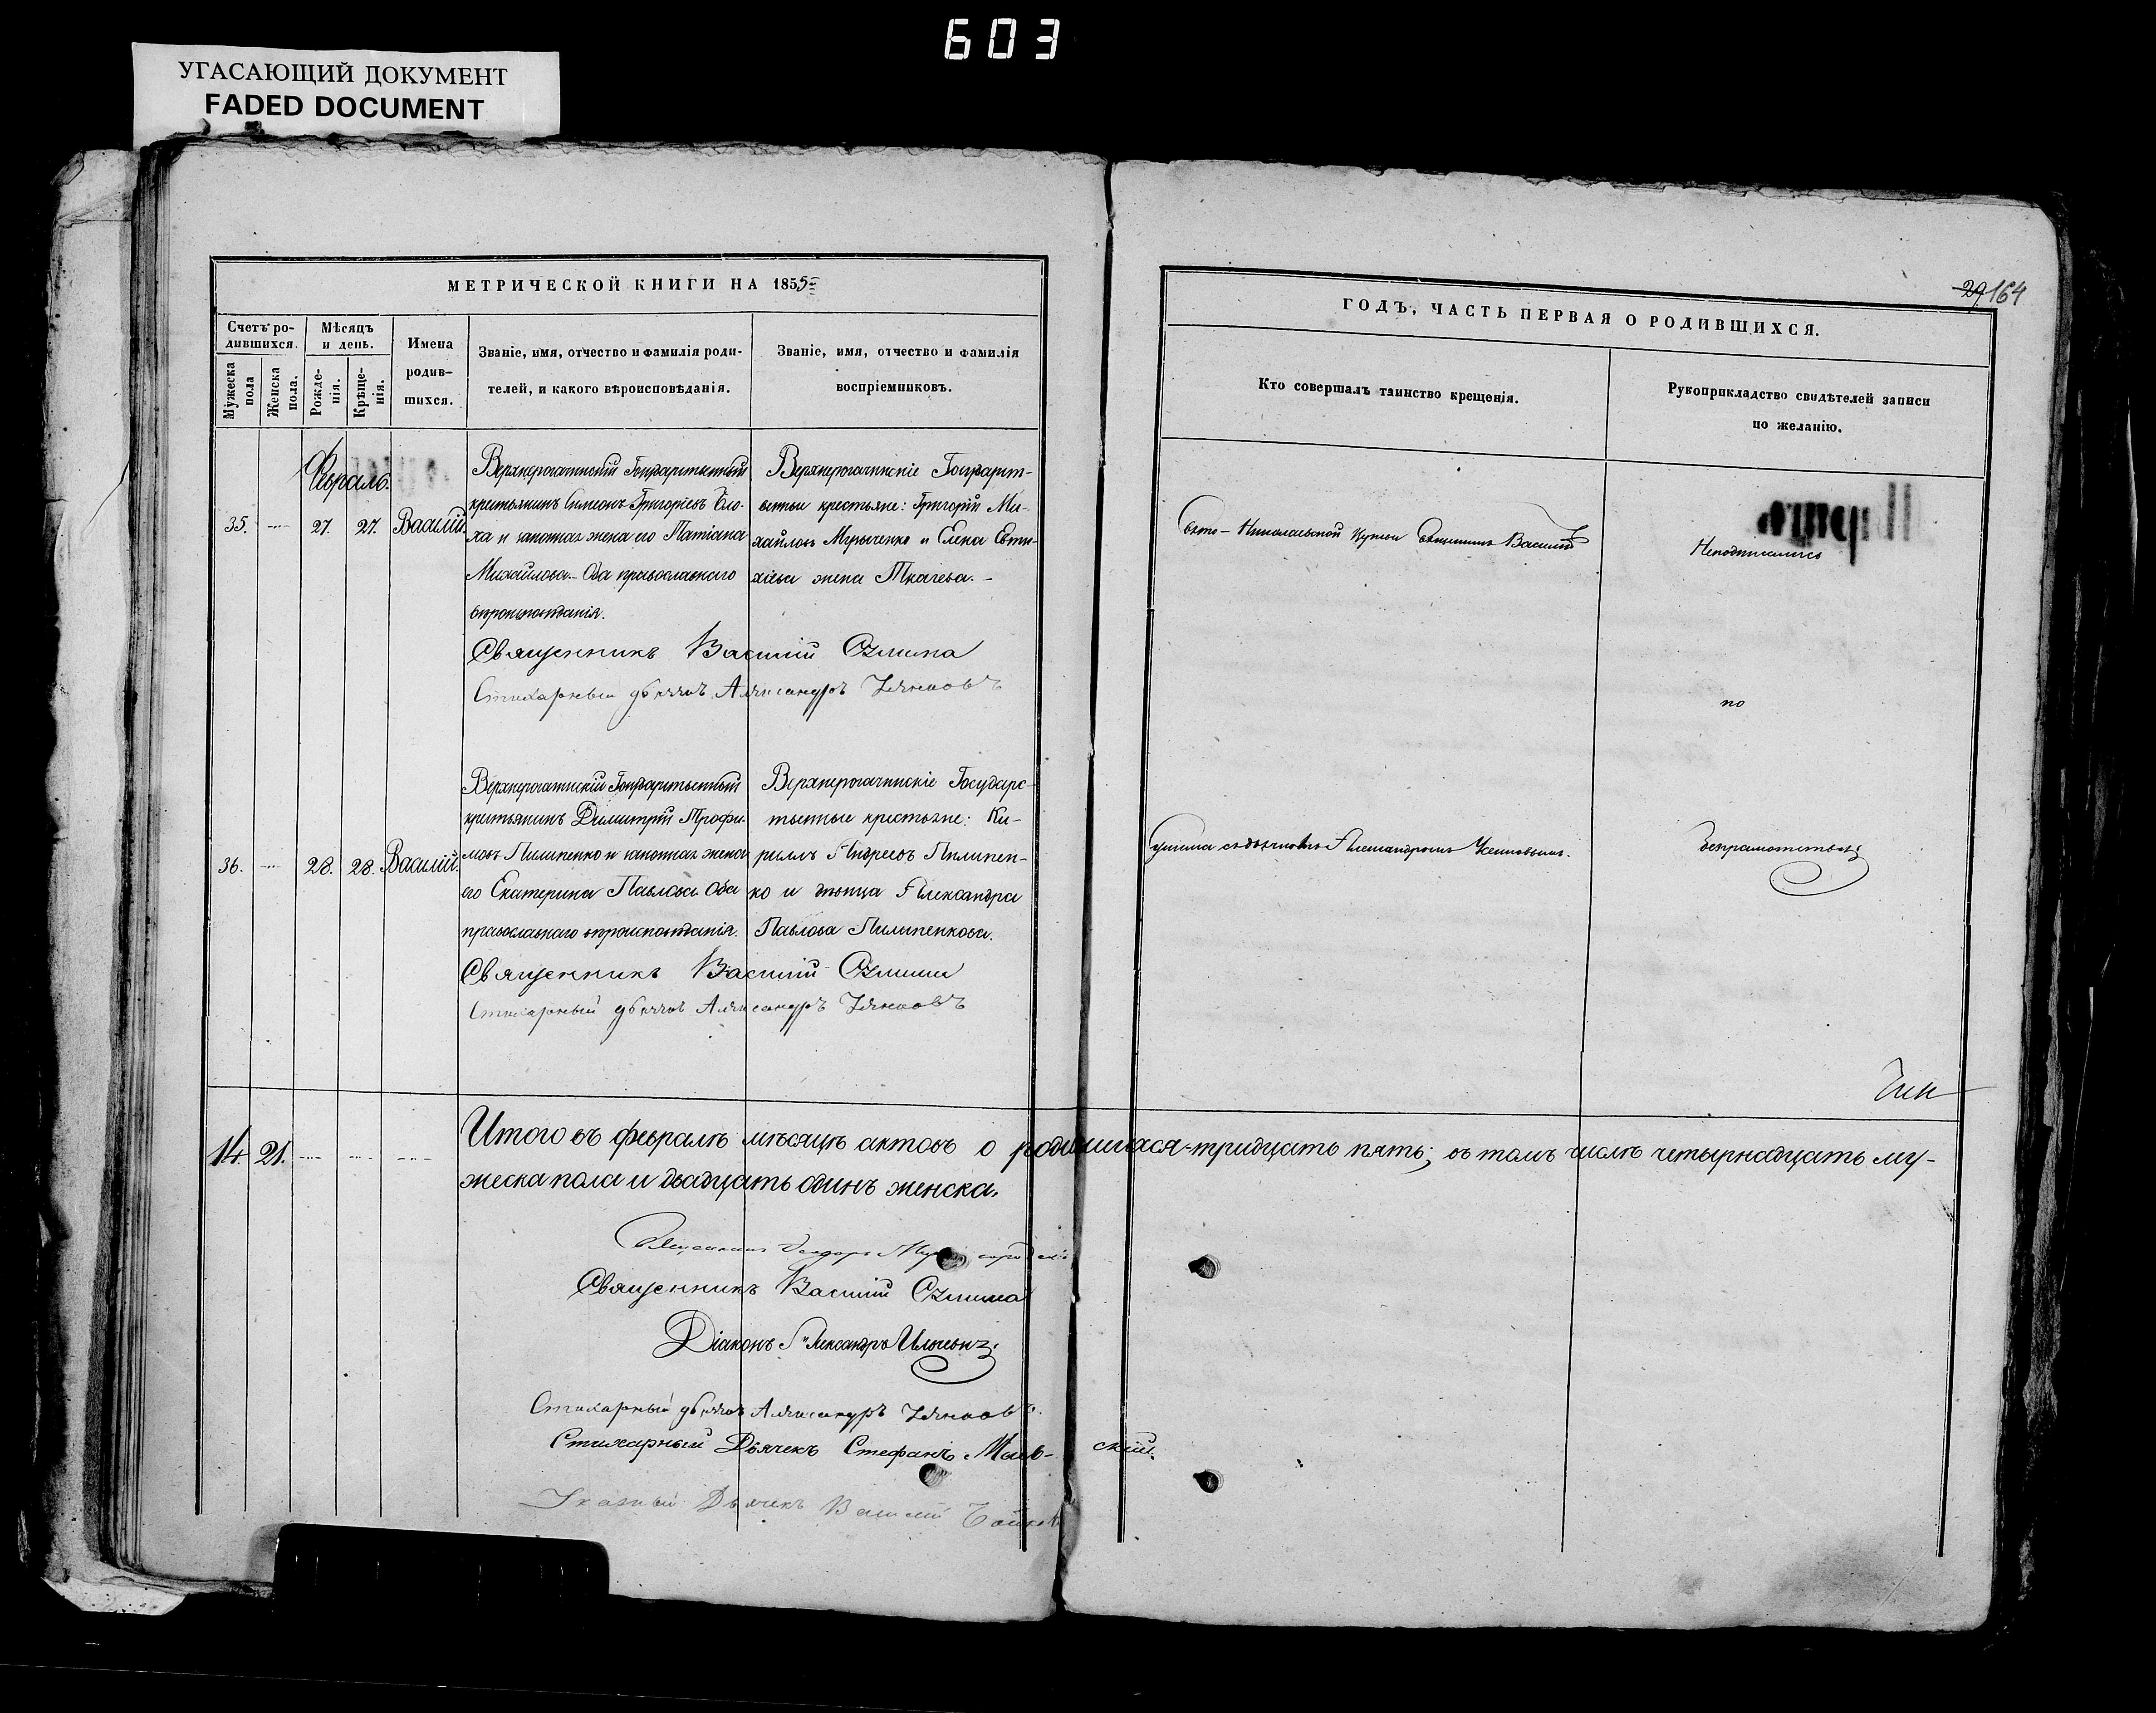 603
УГАСАЮЩИЙ ДОКУМЕНТ
FADED DOCUMENT
МЕТРИЧЕСКОЙ КНИГИ НА 1855
Счетъ ро-
дившихся.
Мужеска пола
Женска пола.
Мѣсяцъ
и день.
Рожде-
нія.
Крѣще-
нія.
Имена
родив-
шихся.
Званіе, имя, отчество и фамилія роди-
телей, и какого вѣроисповѣданія.
Званіе, имя, отчество и фамилія
воспріемниковъ.
29 164
ГОДЪ, ЧАСТЬ ПЕРВАЯ О РОДИВШИХСЯ.
Кто совершалъ таинство крещенія.
Рукоприкладство свидѣтелей записи
по желанію.
Февраль.
35. 27. 27. Василій.
Верхнерогачинскій Государственный
крестьянинъ Симеонъ Григоріевъ Бло-
ха и законная жена его Татіана
Михайлова. Оба православнаго
вѣроисповѣданія.
Верхнерогачинскіе Государст-
венные крестьяне: Григорій Ми-
хайловъ и Елена Евти-
хіева жена Ткачева.
Свято-Николаевской Священникъ Василій
Неподписались
Священникъ Василій
Стихарный дьячокъ Александръ
по
36. 28. 28. Василій.
Верхнерогачинскій Государственный
крестьянинъ Димитрій Трофи-
мовъ Пилипенко и законная жена
его Екатерина Павлова. Оба
православнаго вѣроисповѣданія.
Верхнерогачинскіе Государс-
твенные крестьяне: Ки-
риллъ Андреевъ Пилипен-
ко и дѣвица Александра
Павлова Пилипенкова.
съ дьячкомъ Александромъ
безграмотству
Священникъ Василій
Стихарный дьячокъ Александръ
14. 21.
Итого въ февралѣ мѣсяцѣ актовъ о родившихся тридцать пять; въ томъ числѣ четырнадцать му-
жеска пола и двадцать одинъ женска.
Священникъ
Священникъ Василій
Діаконъ Александръ
Стихарный дьячокъ Александръ
Стихарный Дьячекъ Стефанъ
Указный Дьячекъ Василій